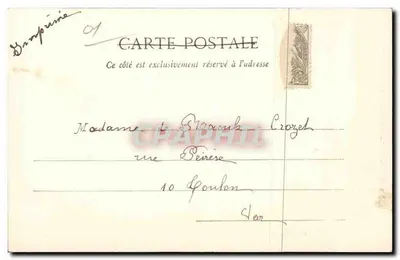 Imprimé
CARTE POSTALE
Ce côté est exclusivement réservé à l'adresse
Madame de Crozet
rue Peirère
10 Toulon
Var